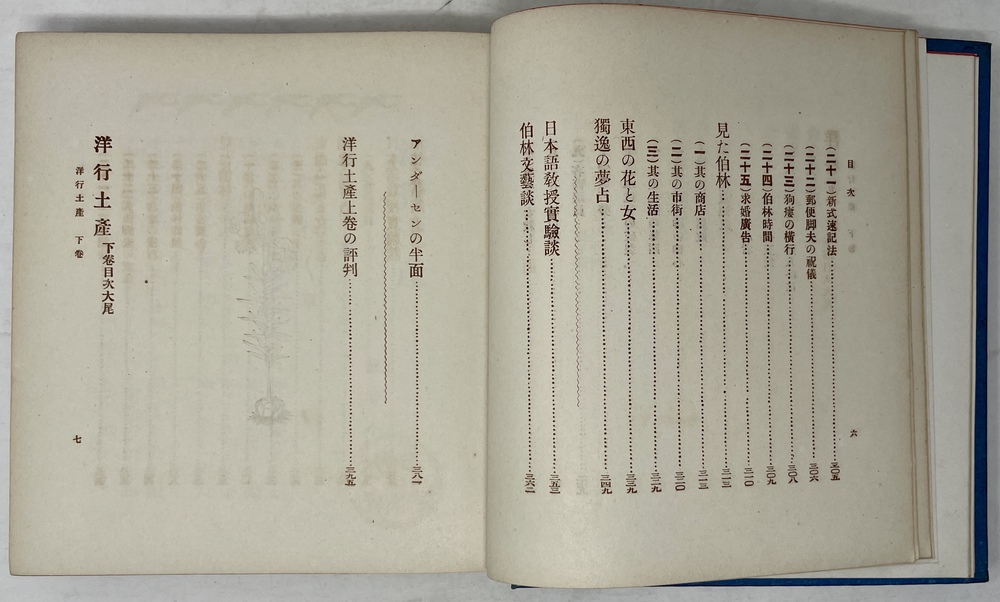 目次
六
(二十一)新式速記法……三〇五
(二十二)郵便脚夫の祝儀……三〇六
(二十三)狗瘻の横行……三〇八
(二十四)伯林時間……三〇九
(二十五)求婚廣告……三一〇
見た伯林……三一三
(一)其の商店……三一三
(二)其の市街……三二〇
(三)其の生活……三二九
東西の花と女……三三九
獨逸の夢占……三四九
日本語教授實驗談……三五三
伯林文藝談……三六二
アンダーセンの半面……三八一
洋行土產上卷の評判……三九五
洋行土產下卷目次大尾
洋行土產 下卷
七